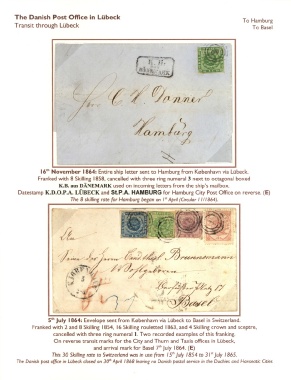 The Danish Post Office in Lübeck
Transit through Lübeck
To Hamburg
To Basel
K. B.
Herrn C. H. Donner
Hamburg
16th November 1864: Entire ship letter sent to Hamburg from København via Lübeck.
Franked with 8 Skilling 1858, cancelled with three ring numeral 3 next to octagonal boxed
K.B. aus DÄNEMARK used on incoming letters from the ship's mailbox.
Datestamp K.D.O.P.A. LÜBECK and St.P.A. HAMBURG for Hamburg City Post Office on reverse. (E)
The 8 skilling rate for Hamburg began on 1st April (Circular 11/1864).
Basel
5th July 1864: Envelope sent from København via Lübeck to Basel in Switzerland.
Franked with 2 and 8 Skilling 1854, 16 Skilling rouletted 1863, and 4 Skilling crown and sceptre,
cancelled with three ring numeral 1. Two recorded examples of this franking.
On reverse transit marks for the City and Thurn and Taxis offices in Lübeck,
and arrival mark for Basel 7th July 1864. (E)
This 30 Skilling rate to Switzerland was in use from 15th July 1854 to 31st July 1865.
The Danish post office in Lübeck closed on 30th April 1868 leaving no Danish postal service in the Duchies and Hanseatic Cities